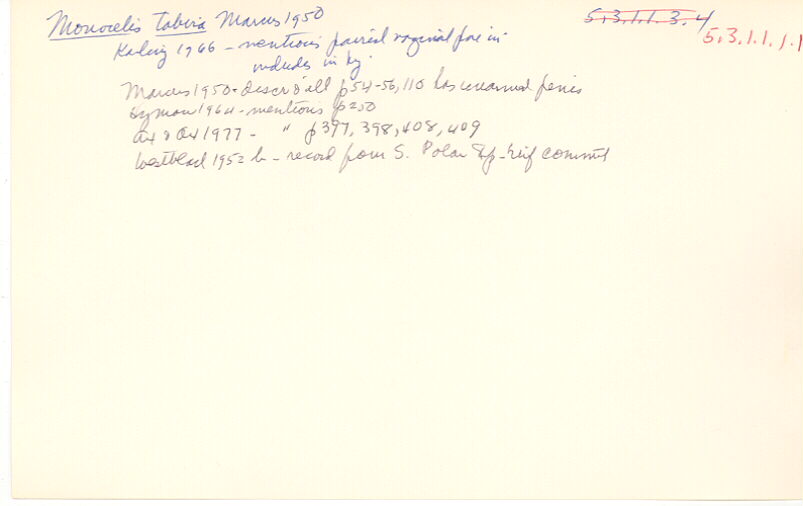 Monocelis tabira Marcus 1950
5.3.1.1.3.4
5.3.1.1.1.1
Karling 1966 - mentions paired vaginal pore in
includes in key.
Marcus 1950 - descr & all p54-56, 110 has unarmed penis
Hyman 1964 - mentions p250
Ax & Ax 1977 - " p397, 398, 408, 409
Westblad 1952 b - record from S. Polar Exp - brief comment